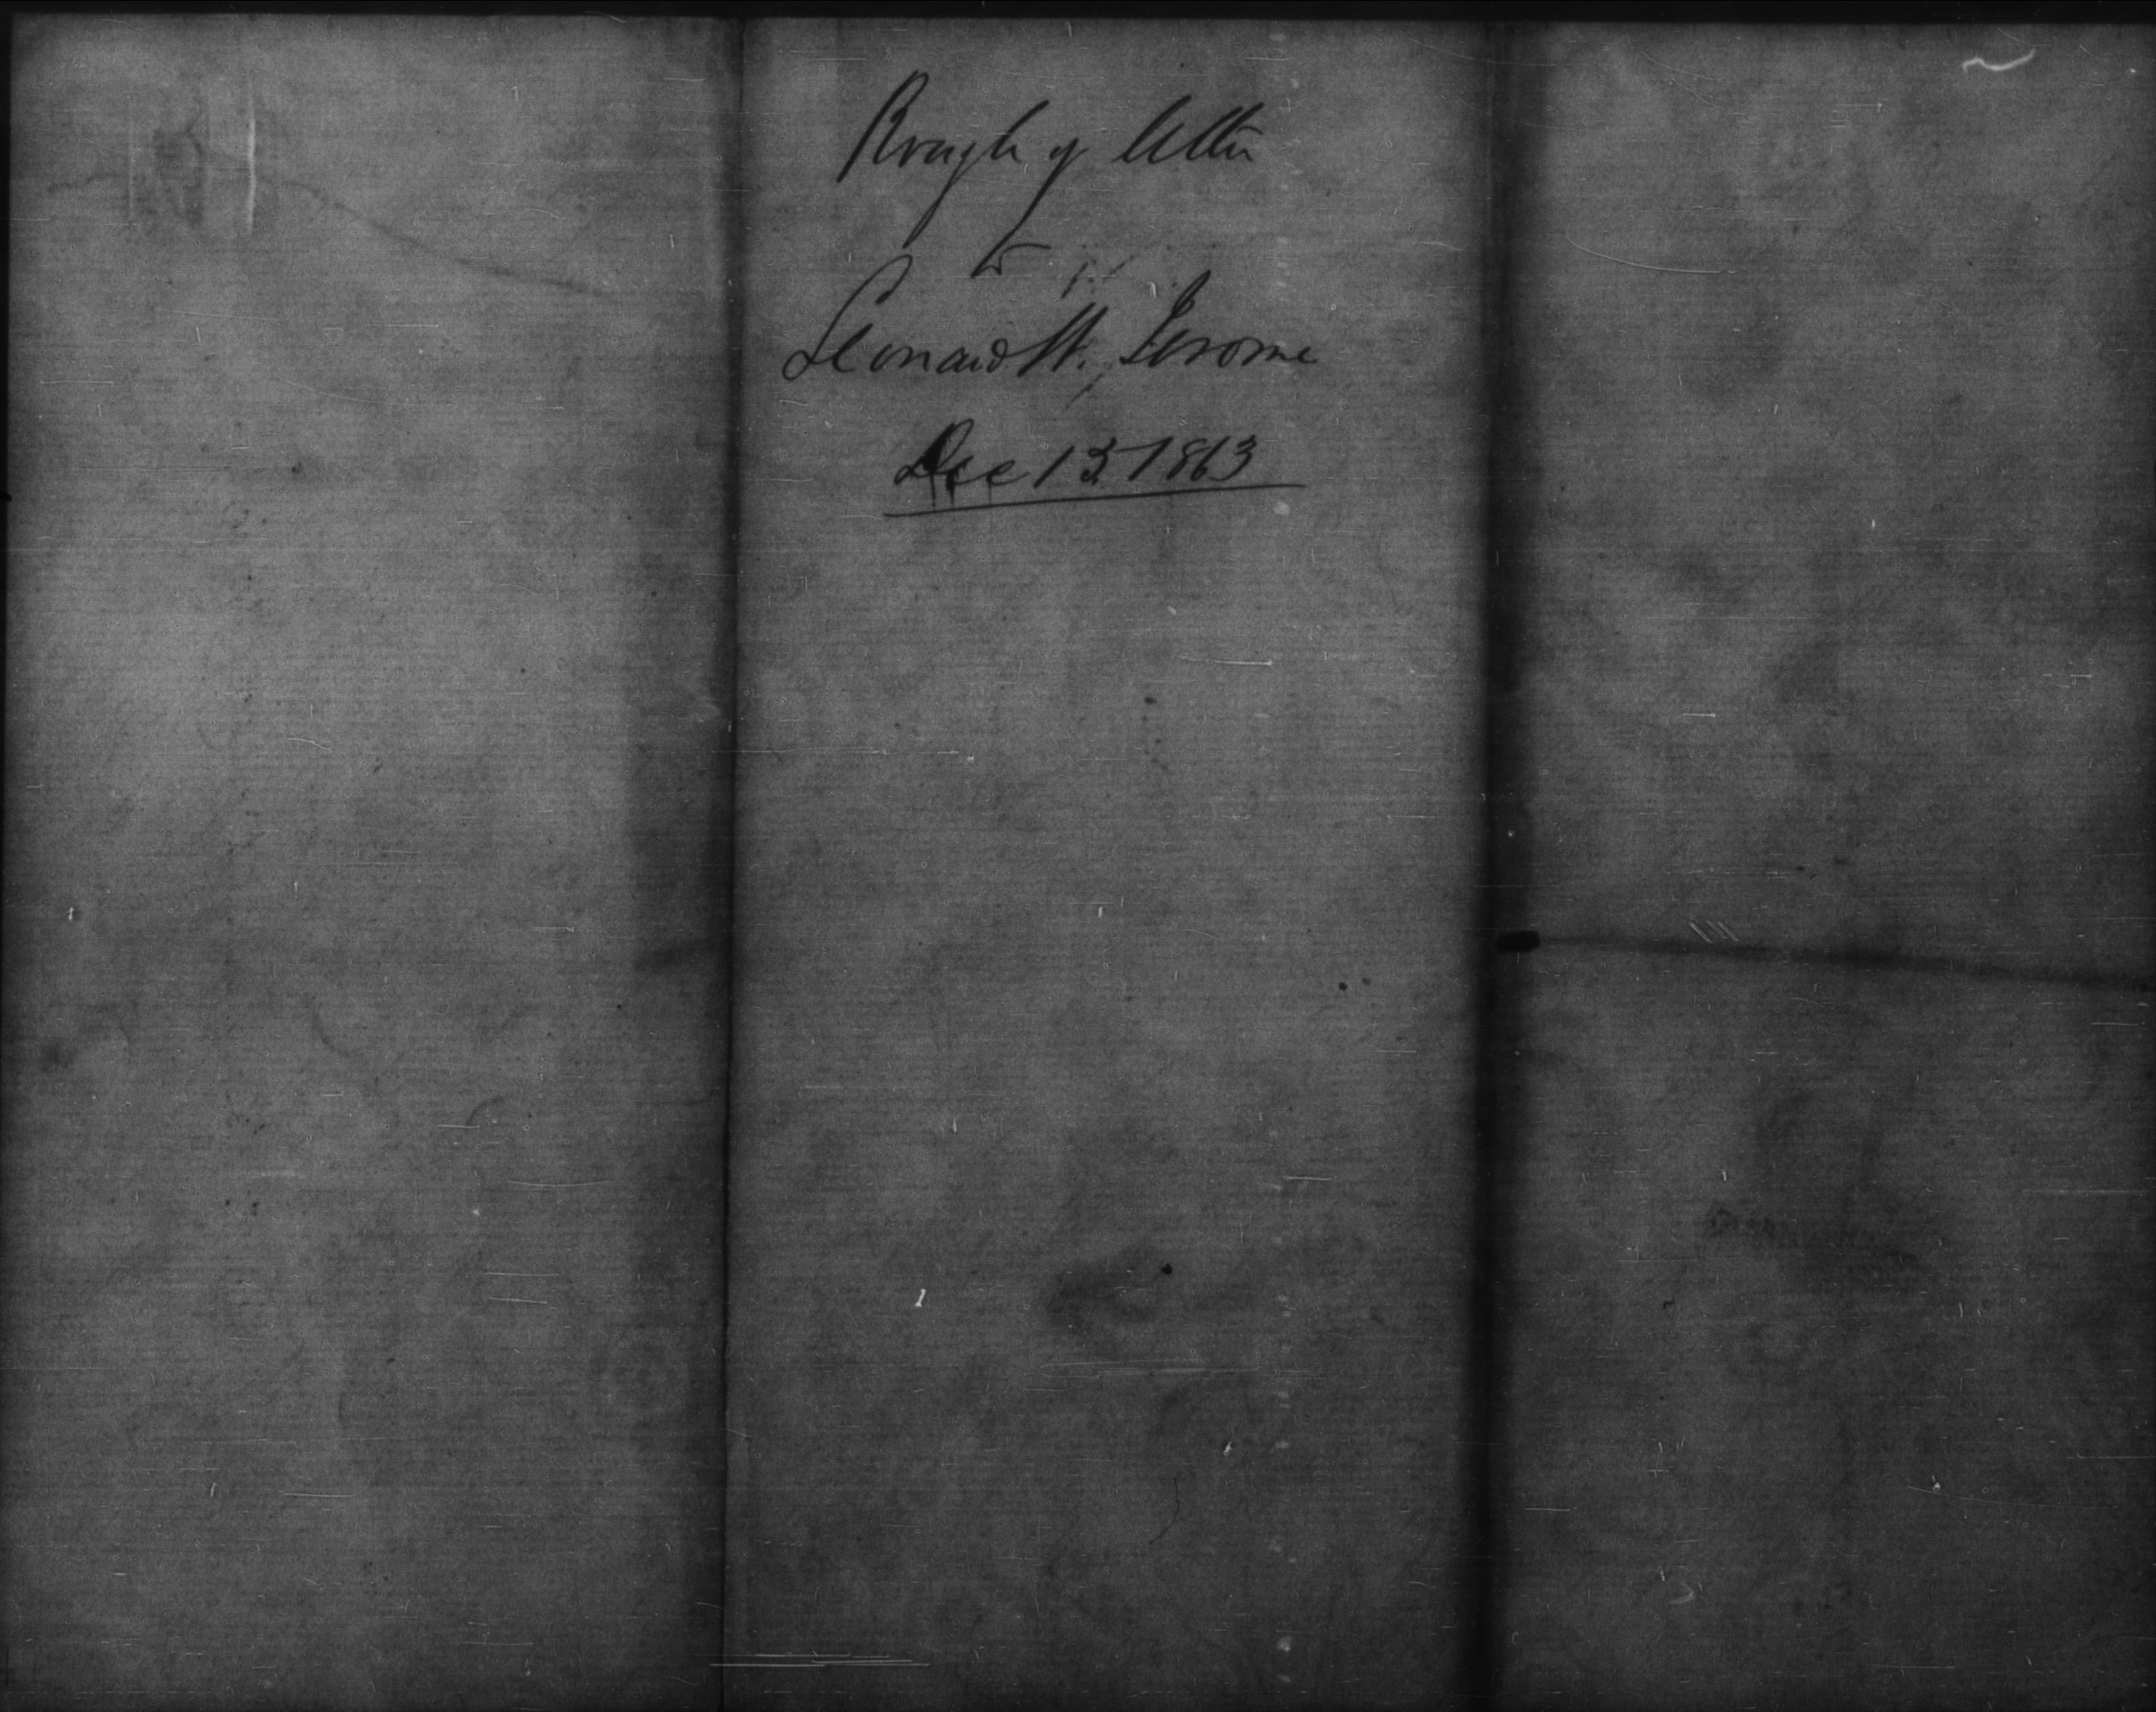 Rough of letter
to
Leonard W. Jerome
Dec 15 1863